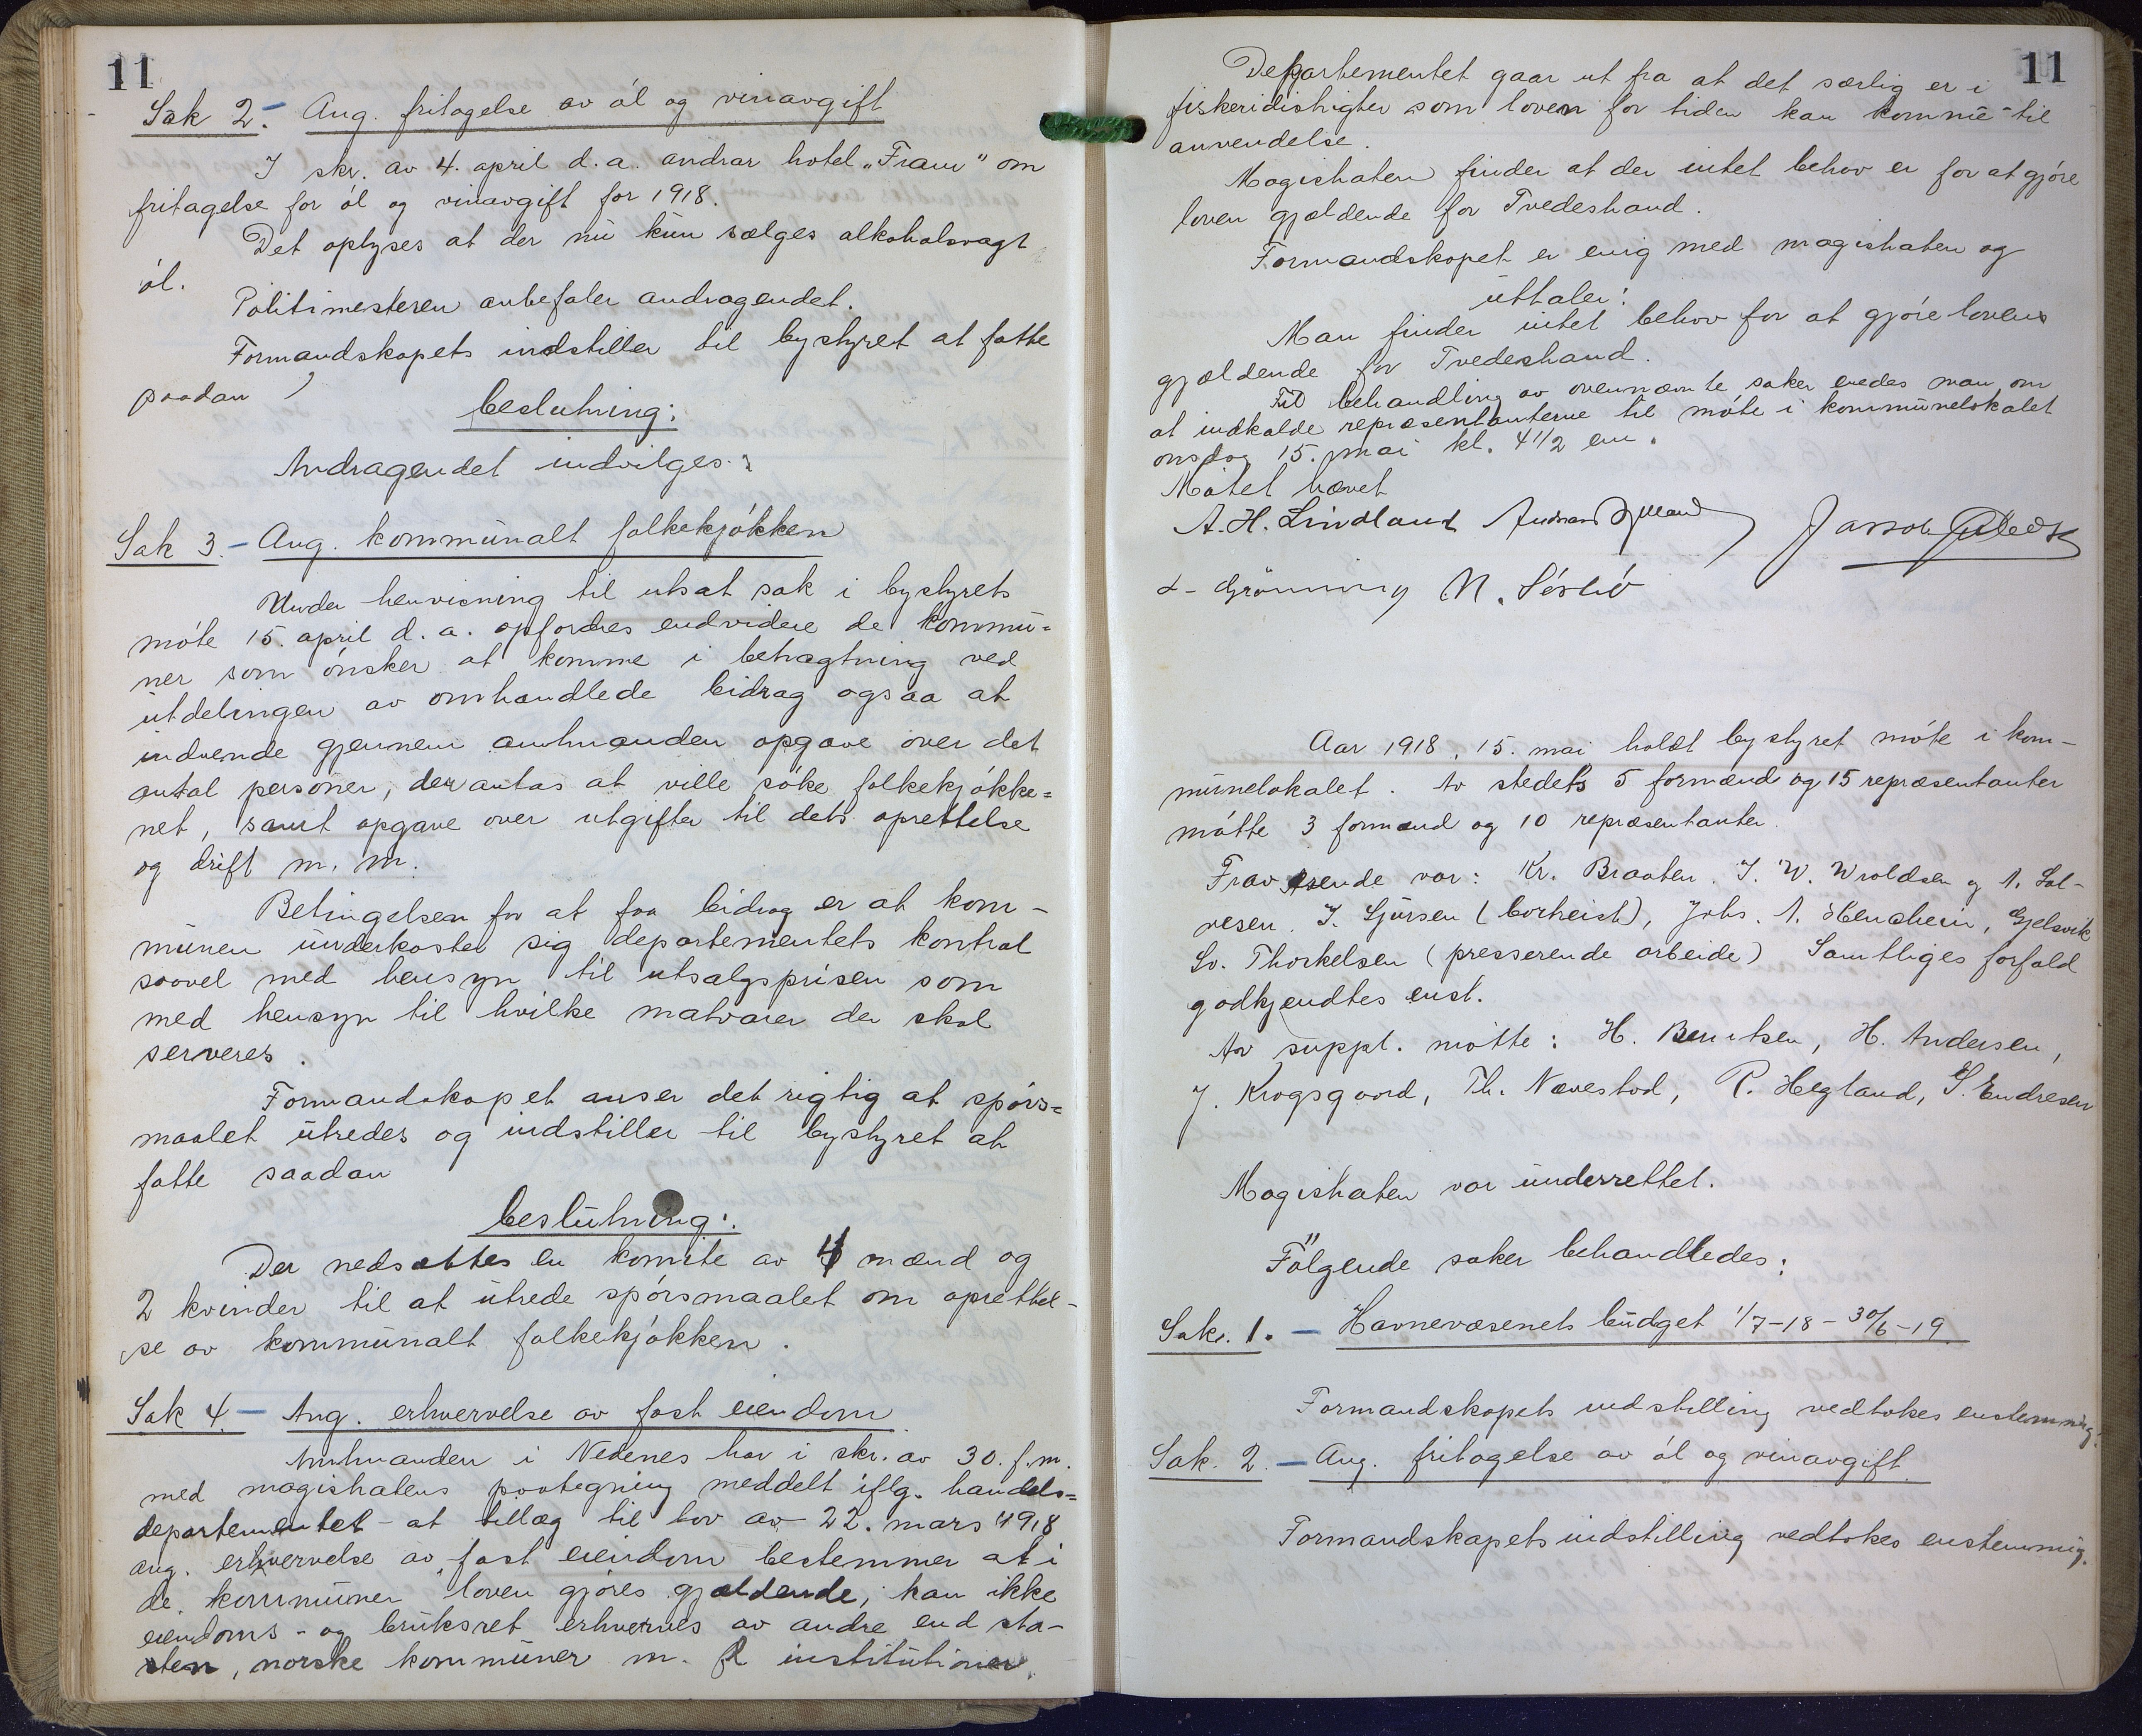 11
Sak 2. - Ang. fritagelse av øl og vinavgift
I skr. av 4. april d. a. andrar hotel „Fram" om
fritagelse for øl og vinavgift for 1918.
Det oplyses at der nu kun sælges alkoholsvagt
øl.
Politimesteren anbefaler andragendet.
Formandskapets indstiller til bystyret at fatte
saadan
beslutning:
Andragendet indvilges.
Sak 3. - Ang. kommunalt folkekjøkken
Under henvisning til utsat sak i bystyrets
møte 15. april d. a. opfordres endvidere de kommu=
ner som ønsker at komme i betragtning ved
utdelingen av omhandlede bidrag ogsaa at
indsende gjennem amtmanden opgave over det
antal personer, der antas at ville søke folkekjøkke=
net, samt opgave over utgifter til dets oprettelse
og drift m. m.
Betingelsen for at faa bidrag er at kom-
munen underkaster sig departementets kontrol
saavel med hensyn til utsalgsprisen som
med hensyn til hvilke matvarer der skal
serveres.
Formandskapet anser det rigtig at spørs=
maalet utredes og indstiller til bystyret at
fatte saadan
beslutning:
Der nedsættes en komite av 4 mænd og
2 kvinder til at utrede spørsmaalet om oprettel-
se av kommunalt folkekjøkken.
Sak 4. - Ang. erhvervelse av fast eiendom
Amtmanden i Nedenes har i skr. av 30. f. m.
med magistratens paategning meddelt iflg. handels=
departementet - at tillæg til lov av 22. mars 1918
ang. erhvervelse av fast eiendom bestemmer at i
de kommuner loven gjøres gjældende, kan ikke
eiendoms- og bruksret erhverves av andre end sta-
ten, norske kommuner m. fl institutioner.
11
Departementet gaar ut fra at det særlig er i
fiskeridistrigter som loven for tiden kan komme til
anvendelse.
Magistraten finder at der intet behov er for at gjøre
loven gjældende for Tvedestrand.
Formandskapet er enig med magistraten og
uttaler:
Man finder intet behov for at gjøre lovens
gjældende for Tvedestrand.
Til behandling av ovennævnte saker enedes man om
at indkalde repræsentanterne til møte i kommunelokalet
onsdag 15. mai kl. 4 1/2 em.
Møtet hævet
A. H. Lindland
Grønning
Aar 1918, 15. mai holdt bystyret møte i kom-
munelokalet. Av stedets 5 formænd og 15 repræsentanter
møtte 3 formænd og 10 repræsentanter
Fraværende var: Kr. Braaten. J. W. Wroldsen og A. Sal-
vesen. J. Sjursen (bortreist), Johs. A. Henchein, Gjelsvik
Sv. Thorkelsen (presserende arbeide) Samtliges forfald
godkjendtes enst.
Av suppl. møtte: H. Berntsen, H. Andersen,
J. Krogsgaard, Th. Nævestad, P. Hegland, S. Endresen
Magistraten var underrettet.
Følgende saker behandledes:
Sak. 1. - Havnevæsenets budget 1/7-18 - 30/6-19.
Formandskapets indstilling vedtokes enstemmig.
Sak. 2. - Ang. fritagelse av øl og vinavgift.
Formandskapets indstilling vedtokes enstemmig.